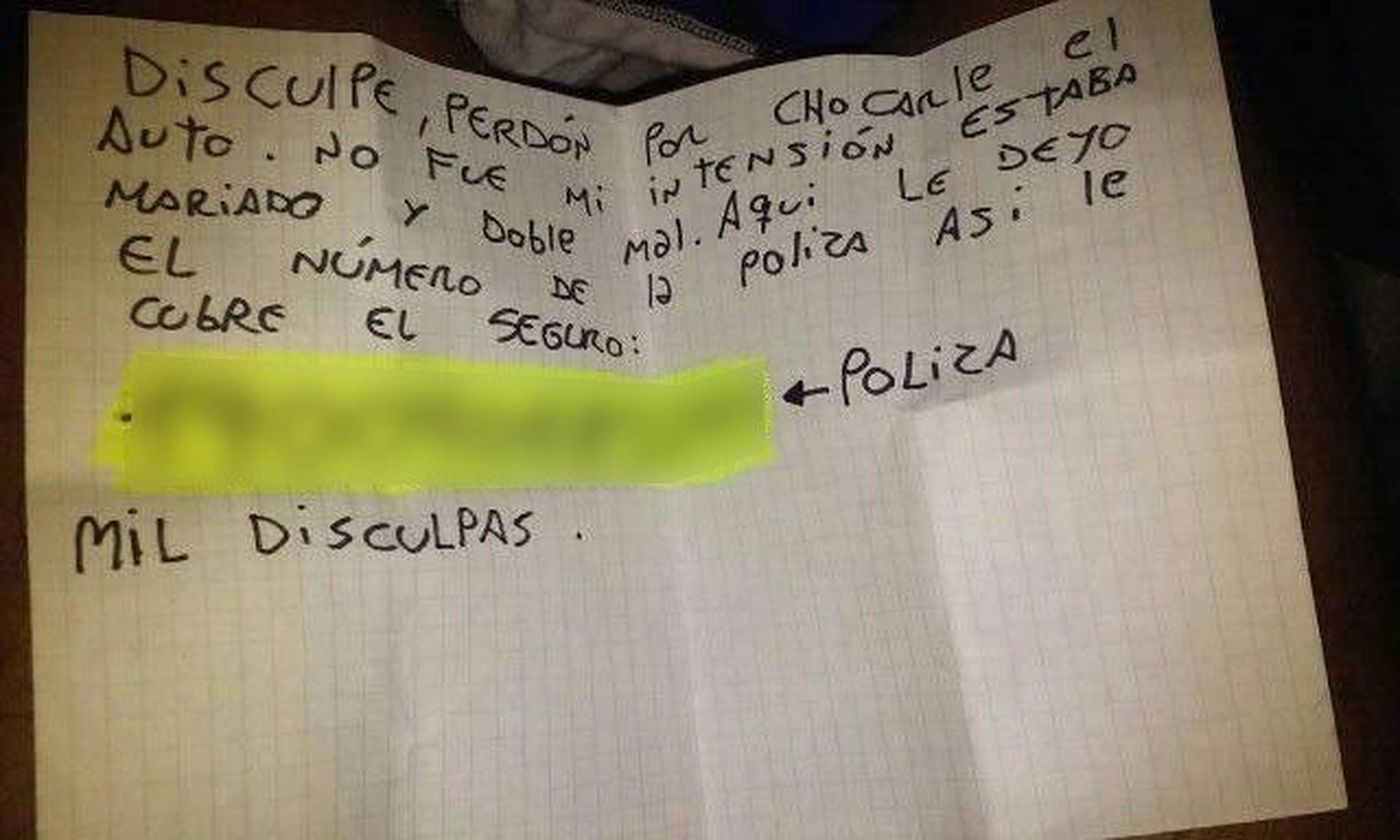 DiSCUlPE, PERDÓN POR CHOCARlE el
AUTO. NO FUE Mi iNTENSiÓN ESTABA
MARiADO Y DOblE Mal. AQUi LE DEYO
EL NÚMERO DE la POLiZA ASi le
CUbRE EL SEGURO:
← POLiZA
MiL DiSCULPAS.